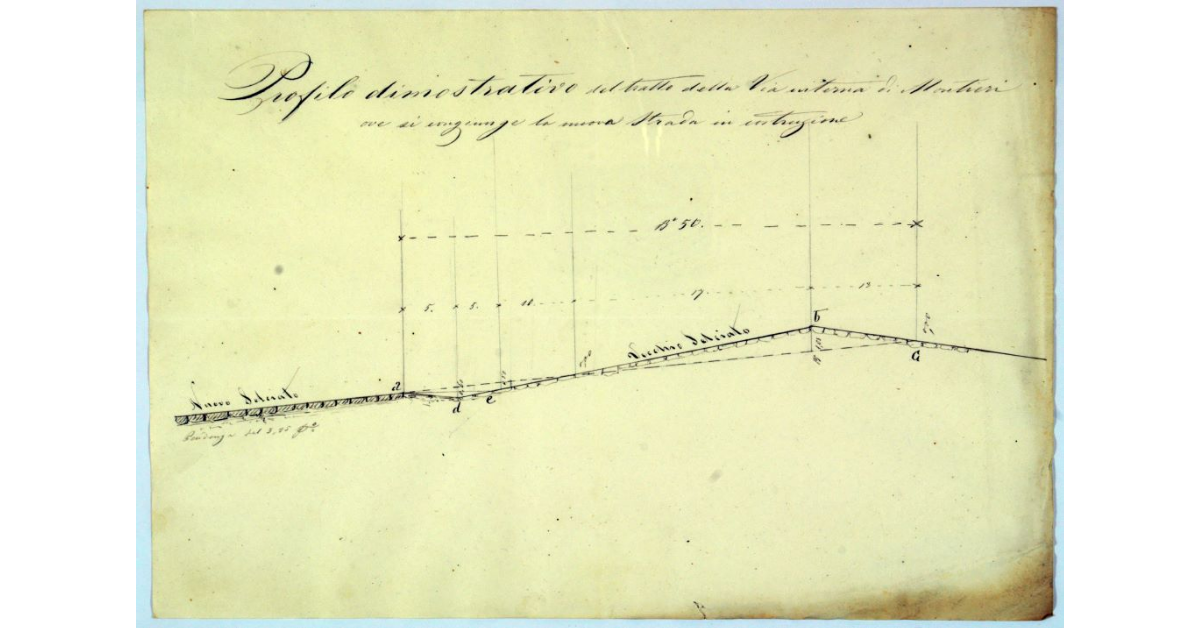 Profilo dimostrativo del tratto della Via interna di Montieri
ove si congiunge la nuova Strada in costruzione
B.a 50.
5. 5. 10. 17 13
b
Vecchio Selciato
a
G
Nuovo Selciato
d e
Pendenza del 3,25